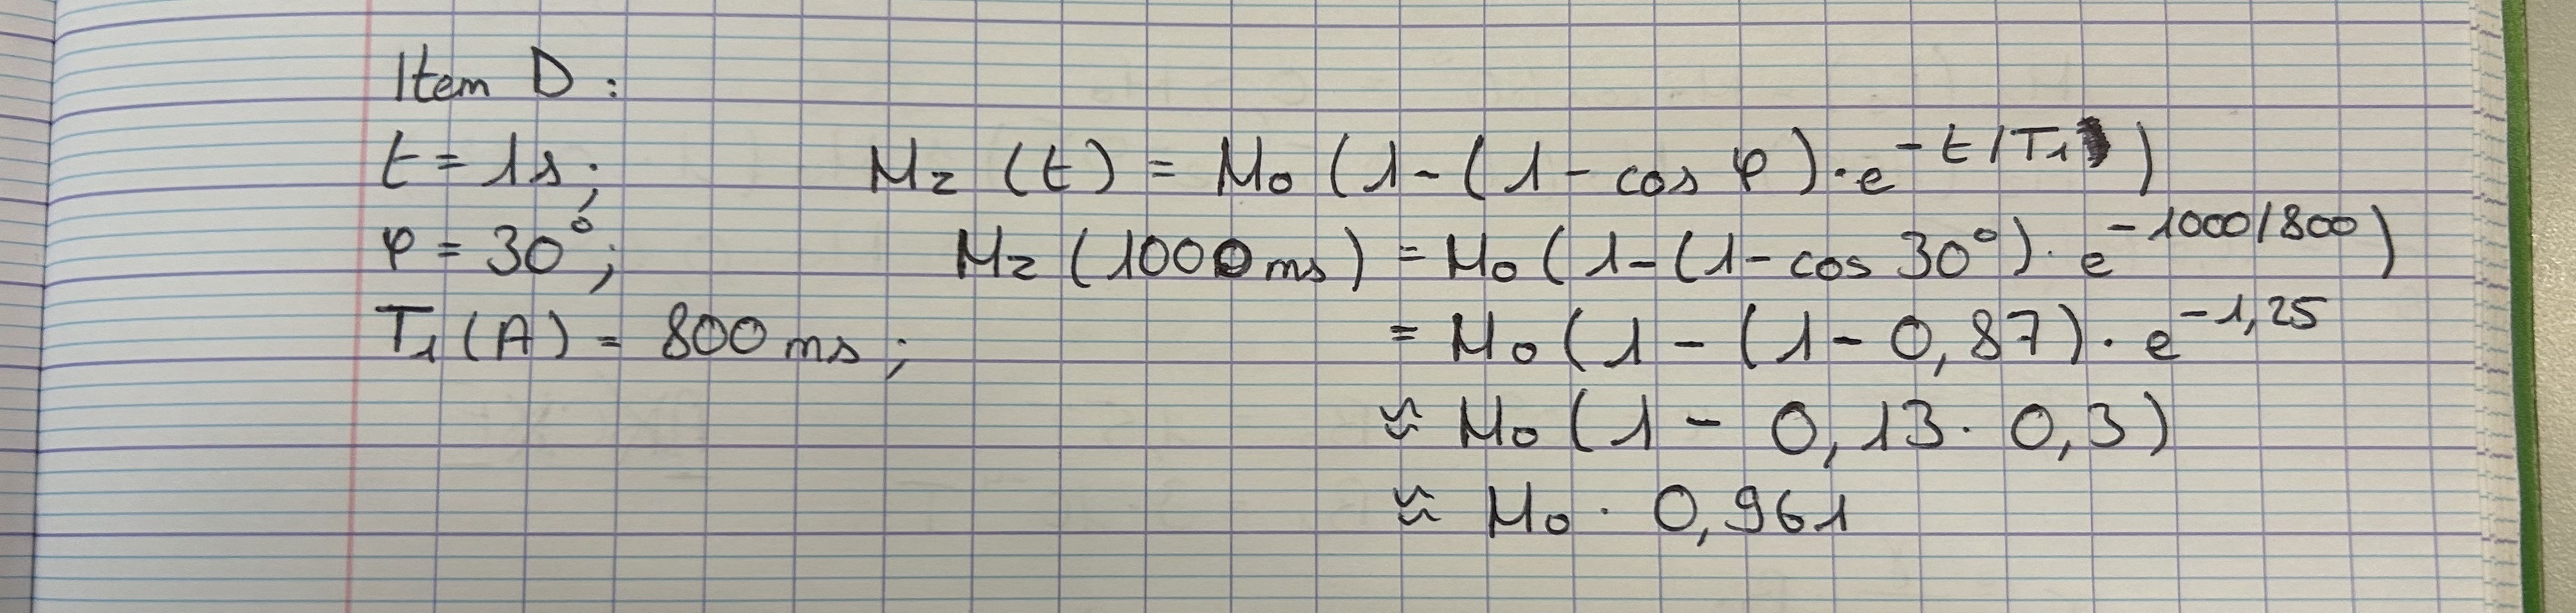 Item D :
t = 1s ; M_z (t) = M_0 (1 - (1 - cos φ) · e^{-t/T_1})
φ = 30° ; M_z (1000 ms) = M_0 (1 - (1 - cos 30°) · e^{-1000/800})
T_1 (A) = 800 ms ; = M_0 (1 - (1 - 0,87) · e^{-1,25}
≈ M_0 (1 - 0,13 · 0,3)
≈ M_0 · 0,961